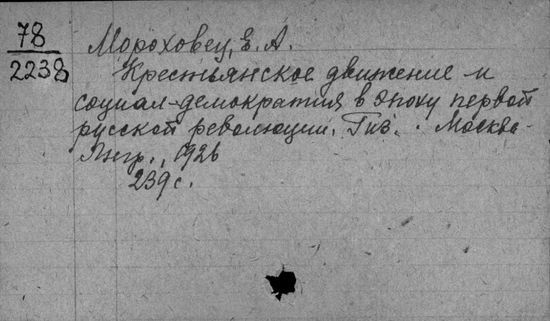 78
2238
Мороховец, Е. А.
Крестьянское движение и
социал-демократия в эпоху первой
русской революции. Гиз. Москва-
Лнгр., 1926
239 с.